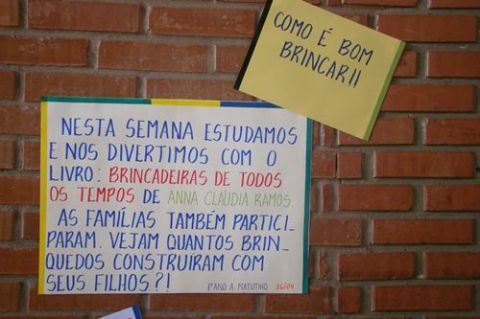 COMO É BOM
BRINCAR!!
NESTA SEMANA ESTUDAMOS
E NOS DIVERTIMOS COM O
LIVRO: BRINCADEIRAS DE TODOS
OS TEMPOS DE ANNA CLAÚDIA RAMOS
AS FAMÍLIAS TAMBÉM PARTICI-
PARAM. VEJAM QUANTOS BRIN-
QUEDOS CONSTRUÍRAM COM
SEUS FILHOS?!
1º ANO A MATUTINO 26/04